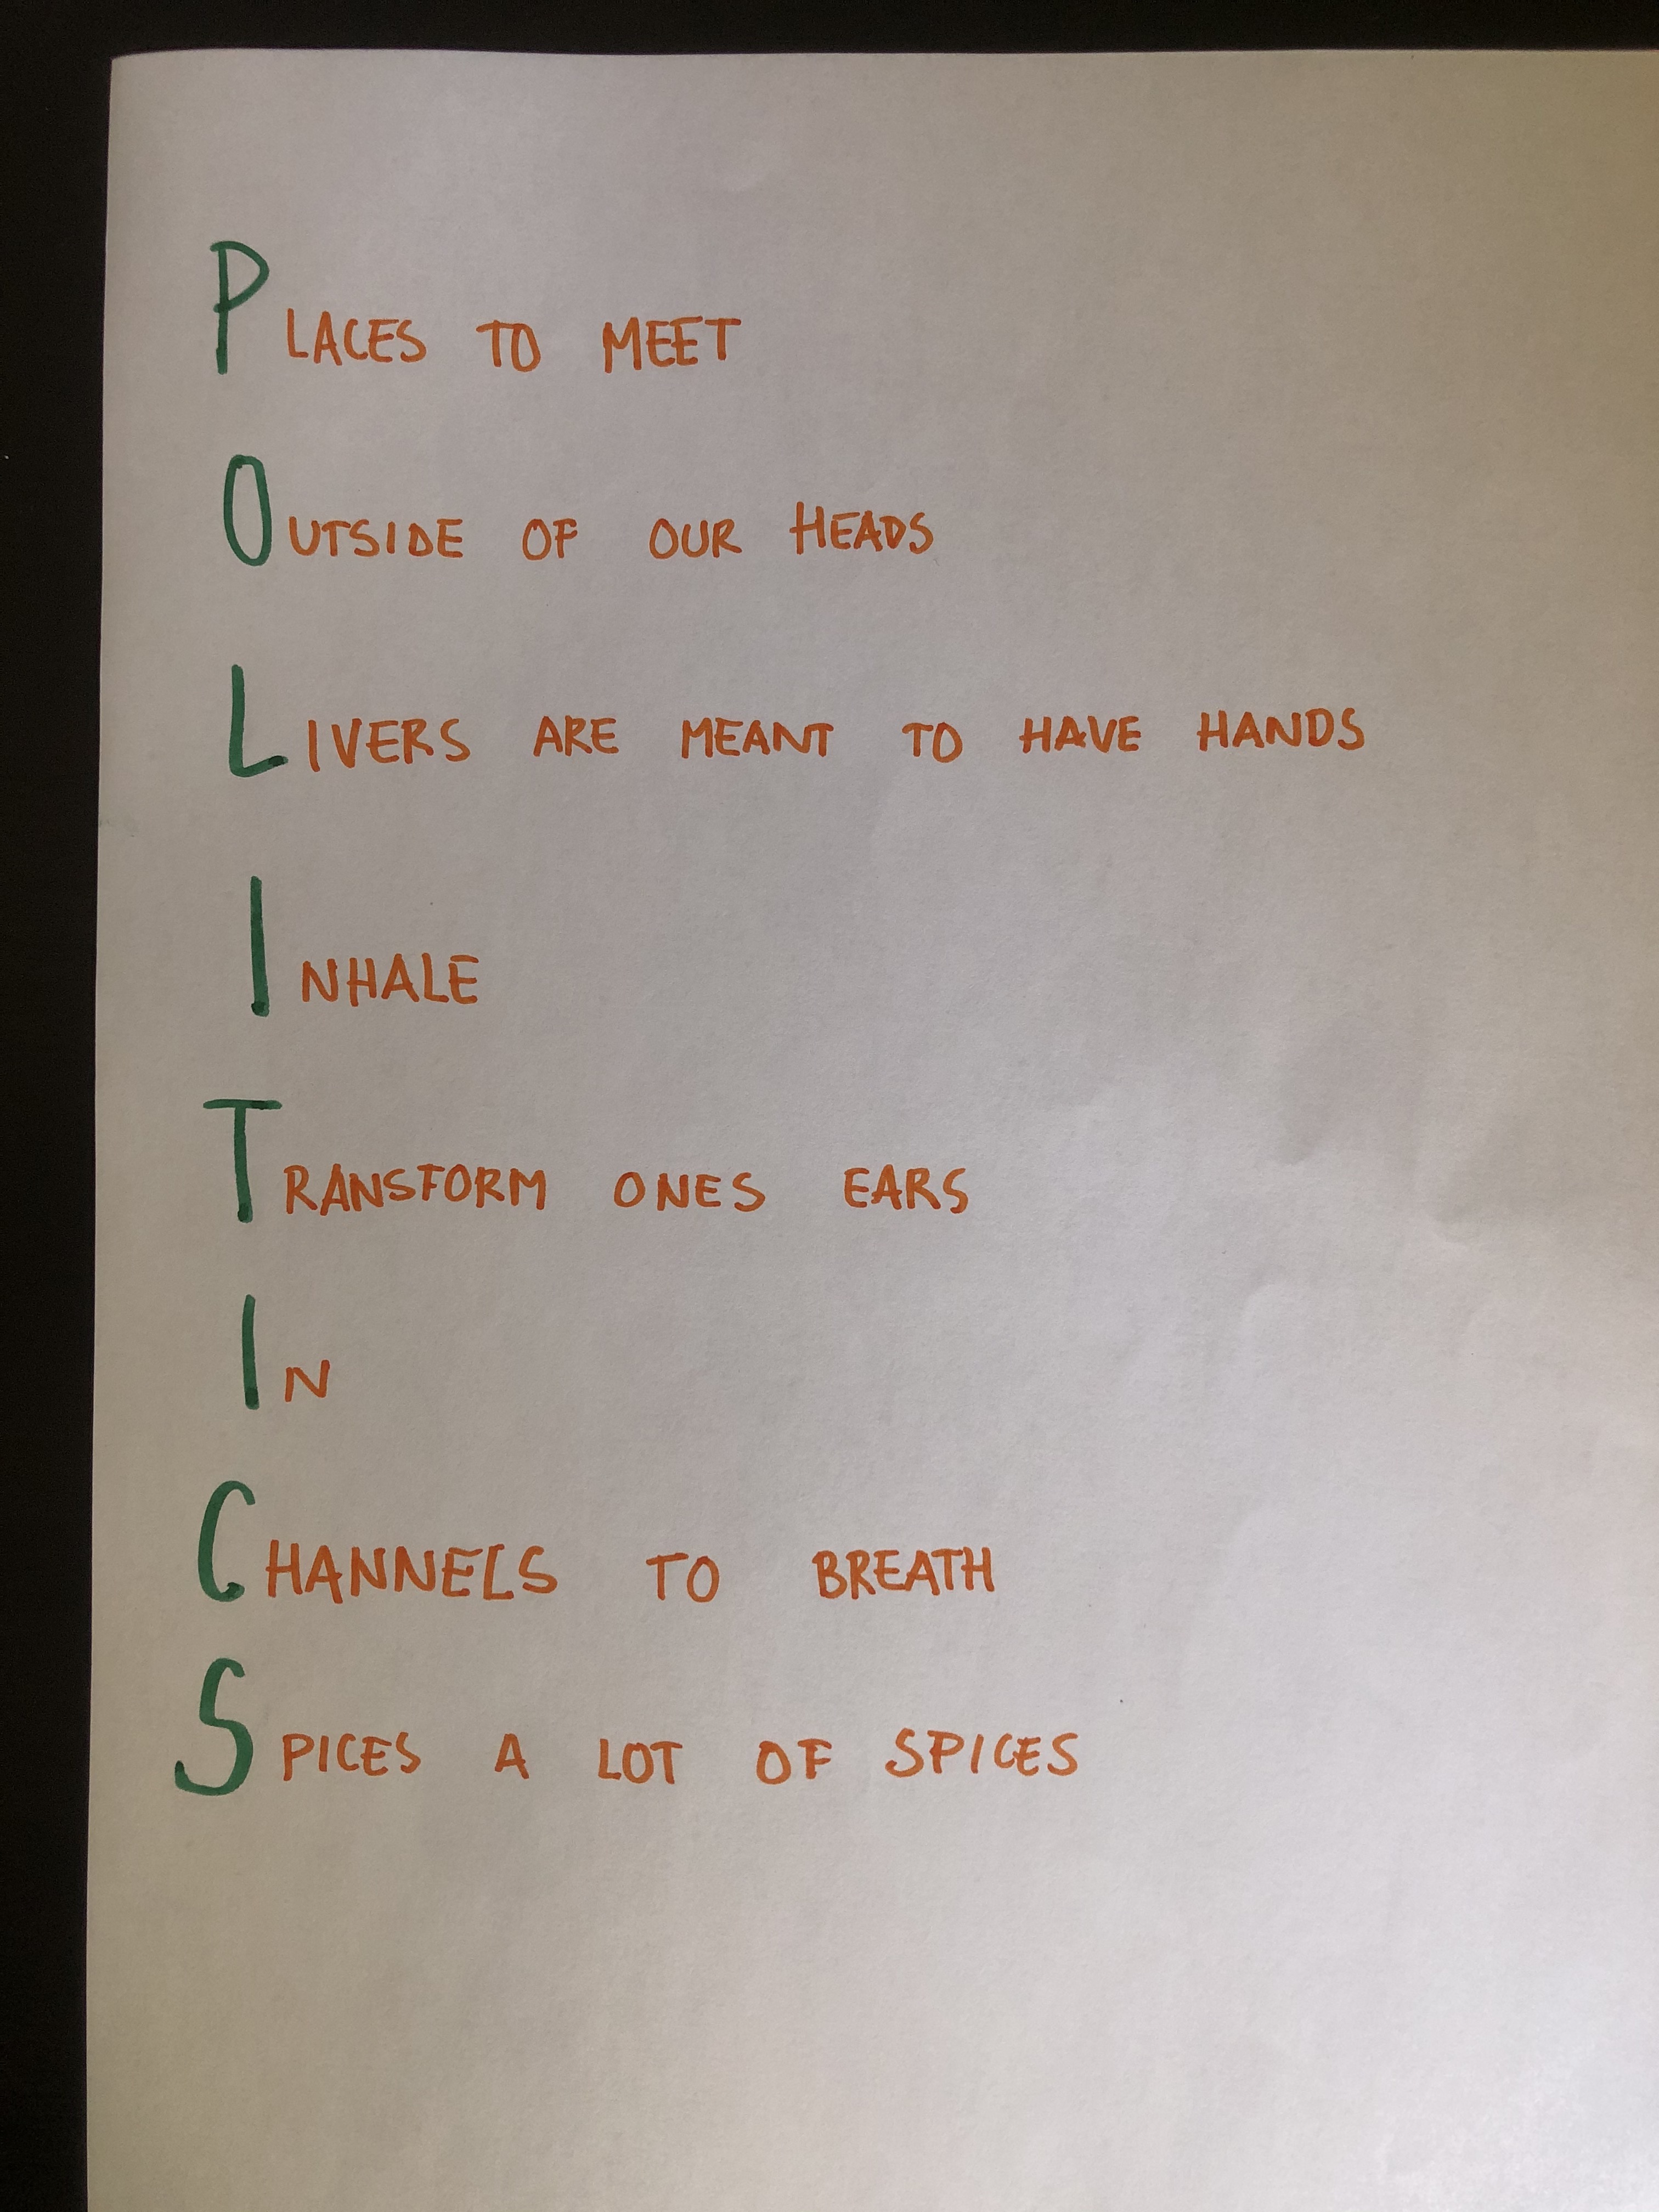 PLACES TO MEET
OUTSIDE OF OUR HEADS
LIVERS ARE MEANT TO HAVE HANDS
INHALE
TRANSFORM ONES EARS
IN
CHANNELS TO BREATH
SPICES A LOT OF SPICES